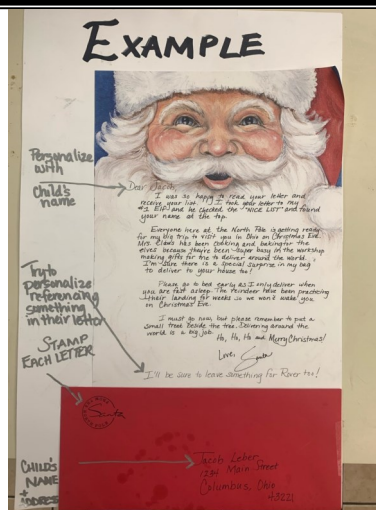 EXAMPLE
Personalize
with
Child's
name
Dear Jacob,
I was so happy to read your letter and
receive your list. I took your letter to my
#1 Elf and he checked the "NICE LIST" and found
your name at the top.
Everyone here at the North Pole is getting ready
for my big trip to visit you in Ohio on Christmas Eve.
Mrs. Claus has been cooking and baking for the
elves because they've been super busy in the workshop
making gifts for me to deliver around the world.
I'm sure there is a special surprise in my bag
to deliver to your house too!
Please go to bed early as I only deliver when
you are fast asleep. The reindeer have been practicing
their landing for weeks so we won't wake you
on Christmas Eve.
I must go now, but please remember to put a
small treat beside the tree. Delivering around the
world is a big job.
Ho, Ho, Ho and Merry Christmas!
Love, Santa
I'll be sure to leave something for Rover too!
Try to
personalize
referencing
something
in their letter
STAMP
EACH LETTER
Santa
CHILD'S
NAME
+
ADDRESS
Jacob Leber
1234 Main Street
Columbus, Ohio
43221